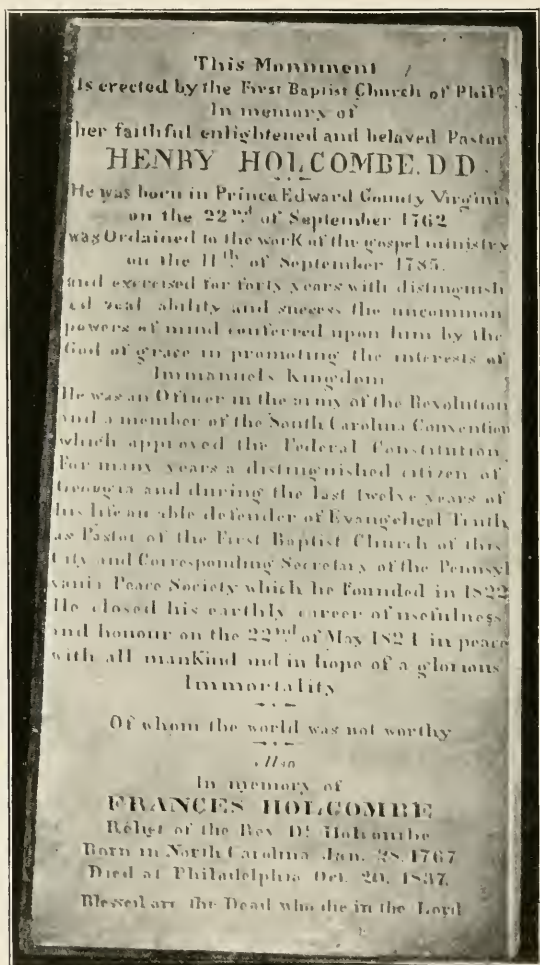 This Monument
Is erected by the First Baptist Church of Phila
In memory of
her faithful enlightened and beloved Pastor
HENRY HOLCOMBE. D D
He was born in Prince Edward County Virginia
on the 22nd of September 1762
was Ordained to the work of the gospel ministry
on the 11th of September 1785.
and exercised for forty years with distinguish
ed zeal ability and success the uncommon
powers of mind conferred upon him by the
God of grace in promoting the interests of
Immanuels Kingdom
He was an Officer in the army of the Revolution
and a member of the South Carolina Convention
which approved the Federal Constitution.
For many years a distinguished citizen of
Georgia and during the last twelve years of
his life an able defender of Evangelical Truth,
as Pastor of the First Baptist Church of this
City and Corresponding Secretary of the Pennsyl
vania Peace Society which he Founded in 1822
He closed his earthly career of usefulness
and honour on the 22nd of May 1824 in peace
with all mankind and in hope of a glorious
Immortality
Of whom the world was not worthy
Also
In memory of
FRANCES HOLCOMBE
Relict of the Rev Dr Holcombe
Born in North Carolina Jan. 28. 1767
Died at Philadelphia Oct. 20. 1837.
Blessed are the Dead who die in the Lord